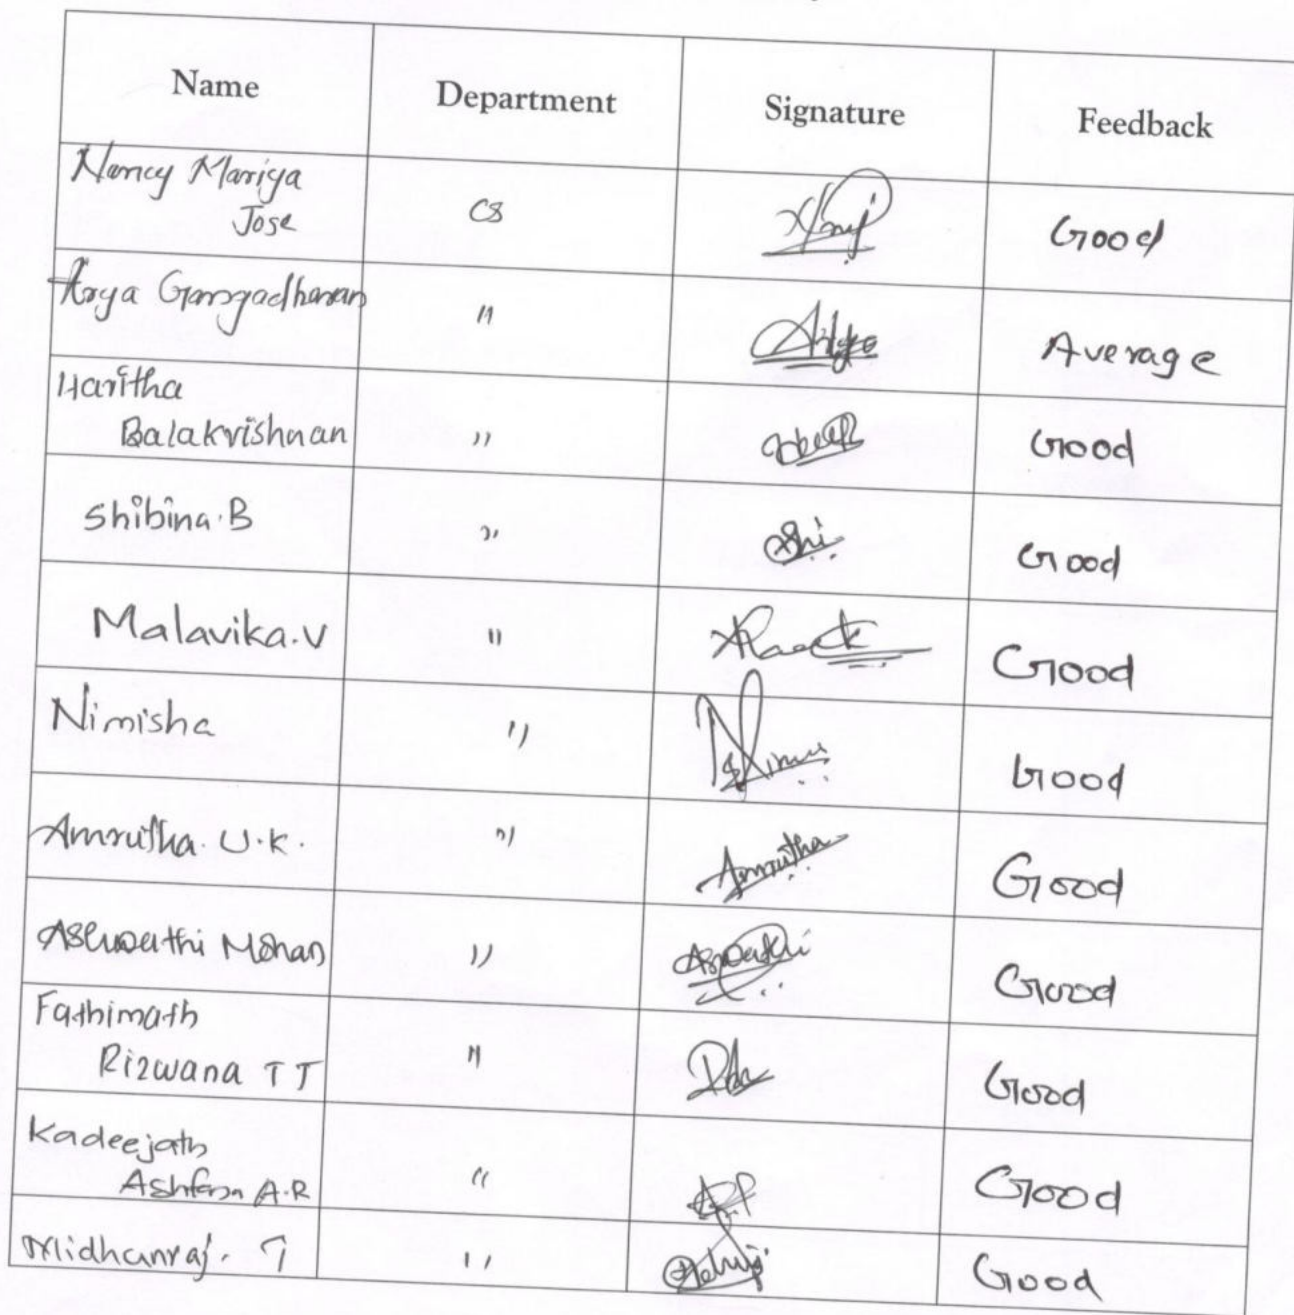 Name Department Signature Feedback
Nancy Mariya
Jose CS Good
Arya Gangadharan " Average
Haritha
Balakrishnan " Good
Shibina.B " Good
Malavika.V " Good
Nimisha " Good
Amrutha. U.K. " Amrutha Good
Aswathi Mohan " Aswathi Good
Fathimath
Rizwana T T " Good
Kadeejath
A.R " Good
Midhunraj. T " Good